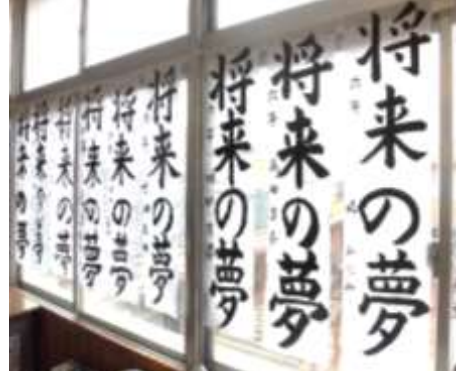 将来の夢
六年
将来の夢
六年
将来の夢
将来の夢
将来の夢
将来の夢
将来の夢
将来の夢
将来の夢